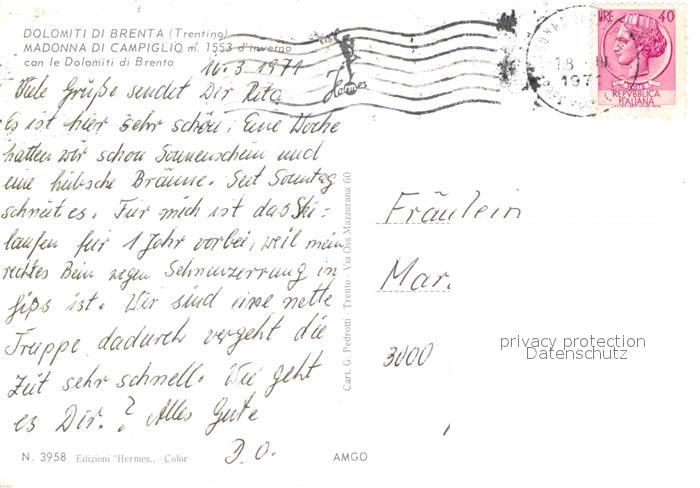 DOLOMITI DI BRENTA (Trentino)
MADONNA DI CAMPIGLIO m. 1553 d'inverno
con le Dolomiti di Brenta
16.3.1971
Viele Grüße sendet Dir Rita
Es ist hier sehr schön. Eine Woche
hatten wir schon Sonnenschein und
eine hübsche Bräune. Seit Sonntag
schneit es. Für mich ist das Ski-
laufen für 1 Jahr vorbei, weil mein
rechtes Bein wegen Sehnenzerrung in
Gips ist. Wir sind eine nette
Truppe dadurch vergeht die
Zeit sehr schnell. Wie geht
es Dir? Alles Gute
D.O.
N. 3958 Edizioni "Hermes.. - Color
AMGO
Cart. G. Pedrotti - Trento - Via Oss Mazzurana 60
Hermes
1971
LIRE 40
REPVBBLICA
ITALIANA
Fräulein
Mar.
3000
privacy protection
Datenschutz